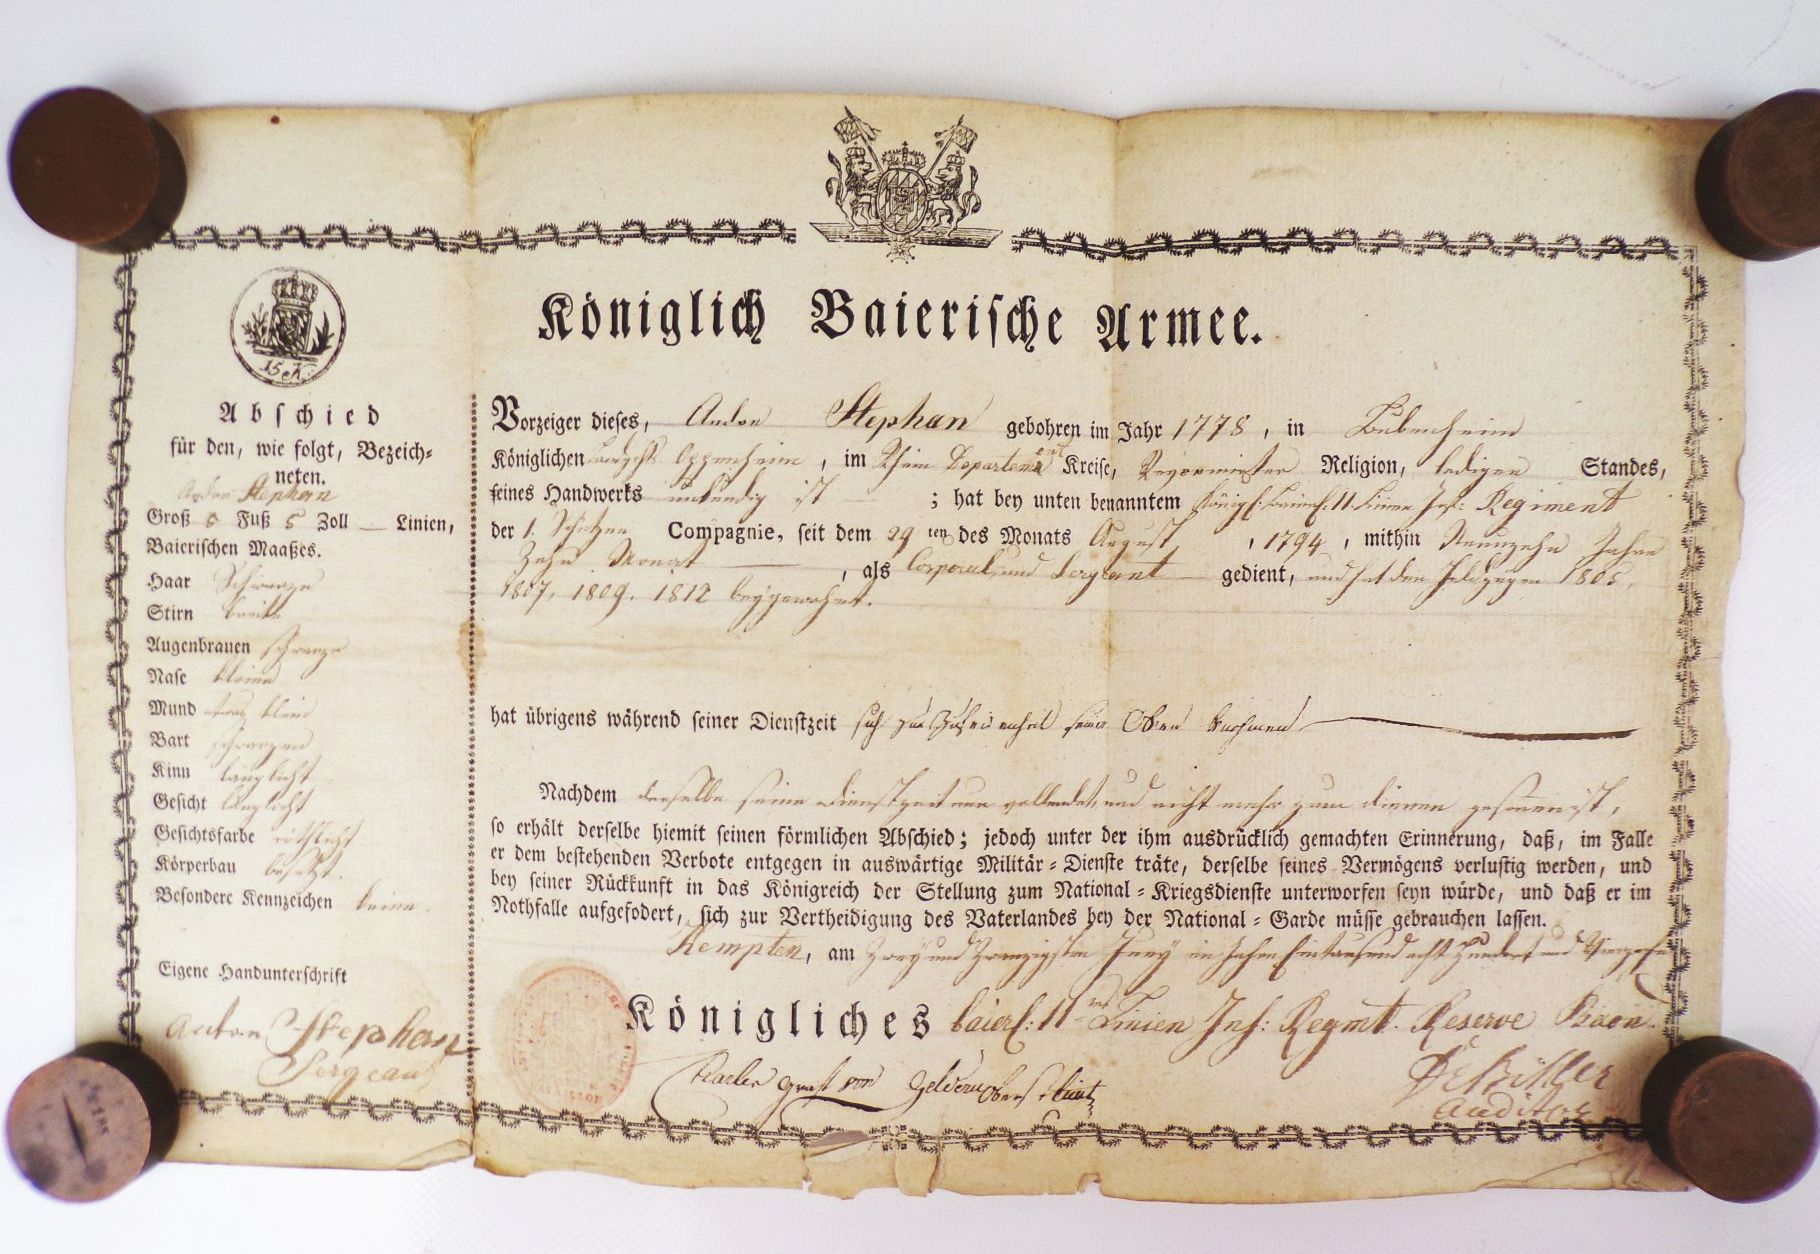 15 K.
Abschied
für den, wie folgt, Bezeich-
neten.
Anton Stephan
Groß 5 Fuß 5 Zoll — Linien,
Baierischen Maaßes.
Haar Schwarze
Stirn breite
Augenbrauen schwarze
Nase kleine
Mund etwas klein
Bart schwarzen
Kinn länglicht
Gesicht länglicht
Gesichtsfarbe röthlicht
Körperbau besetzt.
Besondere Kennzeichen keine.
Eigene Handunterschrift
Anton Stephan
Sergeant
Königlich Baierische Armee.
Vorzeiger dieses, Anton Stephan gebohren im Jahr 1778, in Bubenheim
Königlichen Oppenheim, im Rhein Departement Kreise, Reformirter Religion, ledigen Standes,
seines Handwerks unkundig ist — ; hat bey unten benanntem Königl: baierl: 11. Linien Inf: Regiment
der 1. Schützen Compagnie, seit dem 29ten des Monats August, 1794, mithin Neunzehn Jahre
Zehn Monat —, als Corporal und Sergeant — gedient, und hat den Feldzügen 1805,
1807, 1809. 1812 beygewohnt.
hat übrigens während seiner Dienstzeit sich zur Zufriedenheit seiner Obern
Nachdem derselbe seine Dienstzeit nun vollendet, und nicht mehr zum dienen gesonnen ist,
so erhält derselbe hiemit seinen förmlichen Abschied; jedoch unter der ihm ausdrücklich gemachten Erinnerung, daß, im Falle
er dem bestehenden Verbote entgegen in auswärtige Militär-Dienste träte, derselbe seines Vermögens verlustig werden, und
bey seiner Rückkunft in das Königreich der Stellung zum National-Kriegsdienste unterworfen seyn würde, und daß er im
Nothfalle aufgefodert, sich zur Vertheidigung des Vaterlandes bey der National-Garde müsse gebrauchen lassen.
Kempten, am Zwey und Zwanzigsten Juny im Jahre Eintausend acht Hundert und Vierzehn
Königliches baierl: 11tes Linien Inf: Regmt. Reserve Baon.
Graf von Geldern Oberstlieut
Auditor